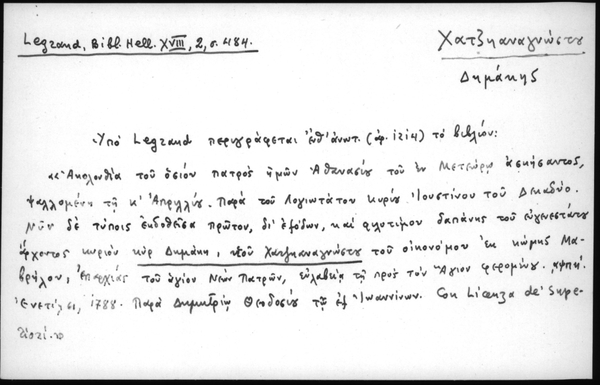 Legrand, Bibl. Hell. XVIII, 2, σ. 484.
Χατζηαναγνώστου
Δημάκης
Ὑπό Legrand περιγράφεται ἐνθ' ἀνωτ. (ἀρ. 1214) τό βιβλίον:
«Ἀκολουθία τοῦ ὁσίου πατρός ἡμῶν Ἀθανασίου τοῦ ἐν Μετεώρῳ ἀσκήσαντος,
ψαλλομένη τῇ κ' Ἀπριλλίου. Παρά τοῦ λογιωτάτου κυρίου Ἰουστίνου τοῦ Δεκαδύο.
Νῦν δέ τύποις ἐκδοθεῖσα πρῶτον, δι' ἐξόδων, καί φιλοτίμου δαπάνης τοῦ εὐγενεστάτου
ἄρχοντος κυρίου κύρ Δημάκη, υἱοῦ Χατζηαναγνώστου τοῦ οἰκονόμου ἐκ κώμης Μα-
βρήλου, ἐπαρχίας τοῦ ἁγίου Νέων Πατρῶν, εὐλαβείᾳ τῇ πρός τόν Ἅγιον φερομένου. ͵αψπη'.
Ἐνετίῃσι, 1788. Παρά Δημητρίῳ Θεοδοσίου τῷ ἐξ Ἰωαννίνων. Con Licenza de' Supe-
riori.»